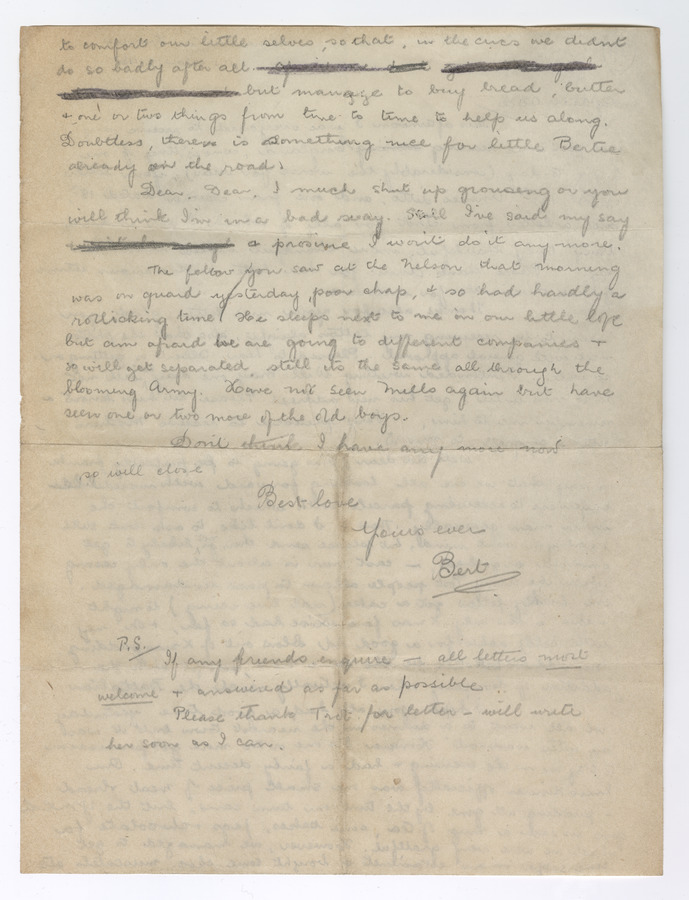 to comfort our little selves, so that, in the circs we didnt
do so badly after all
but manage to buy bread, butter
+ one or two things from time to time to help us along.
Doubtless, there is something nice for little Bertie
already on the road.
Dear, Dear, I much shut up grousing or you
will think I'm in a bad way. Still I've said my say
& promise I won't do it any more.
The fellow you saw at the Nelson that morning
was on guard yesterday, poor chap, & so had hardly a
rollicking time! He sleeps next to me in our little
but am afraid we are going to different companies +
so will get separated, still its the same all through the
blooming Army. Have not seen Mills again but have
seen one or two more of the old boys.
Don't think I have any more now
so will close
Best love
Yours ever
Bert
P.S.
If any friends enquire — all letters most
welcome + answered as far as possible.
Please thank Trit for letter - will write
her soon as I can.